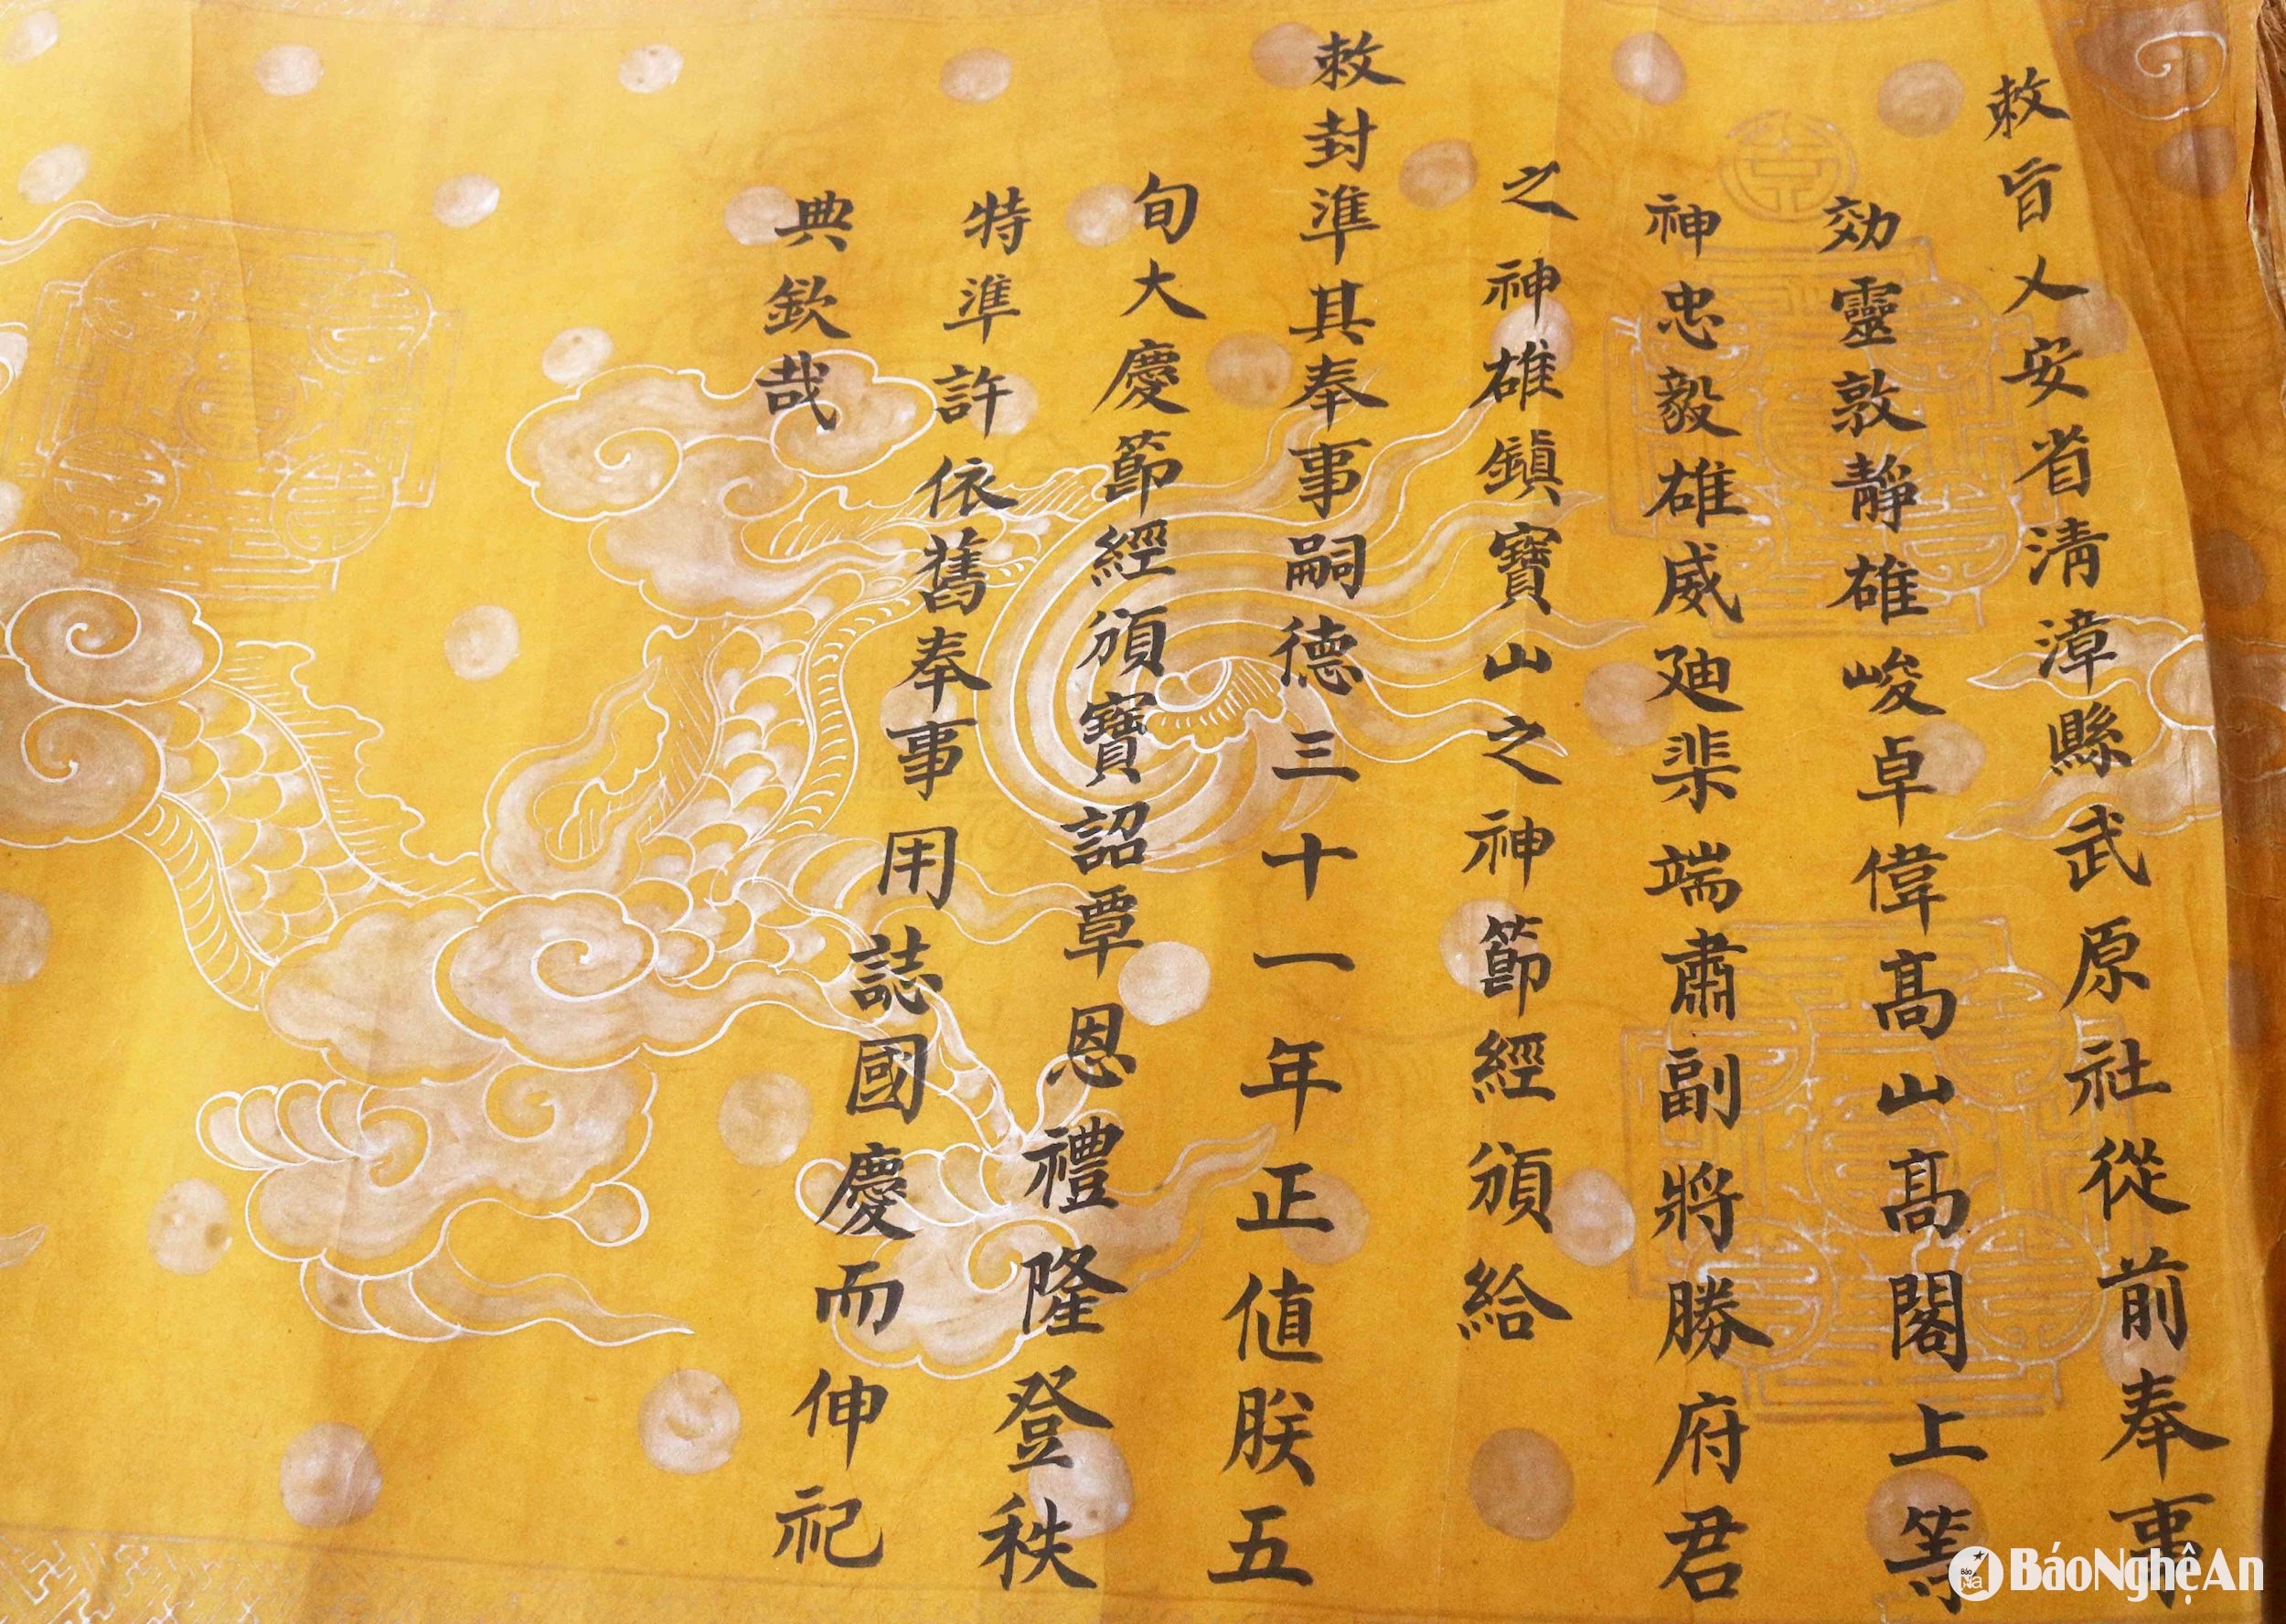 敕旨乂安省淸漳縣武原社從前奉事
効靈敦靜雄峻卓偉髙山髙閣上等
神忠毅雄威廸棐端肅副將勝府君
之神雄鎭寶山之神節經頒給
敕封準其奉事嗣德三十一年正値朕五
旬大慶節經頒寶詔覃恩禮隆登秩
特準許依舊奉事用誌國慶而伸祀
典欽哉
BáoNghệAn